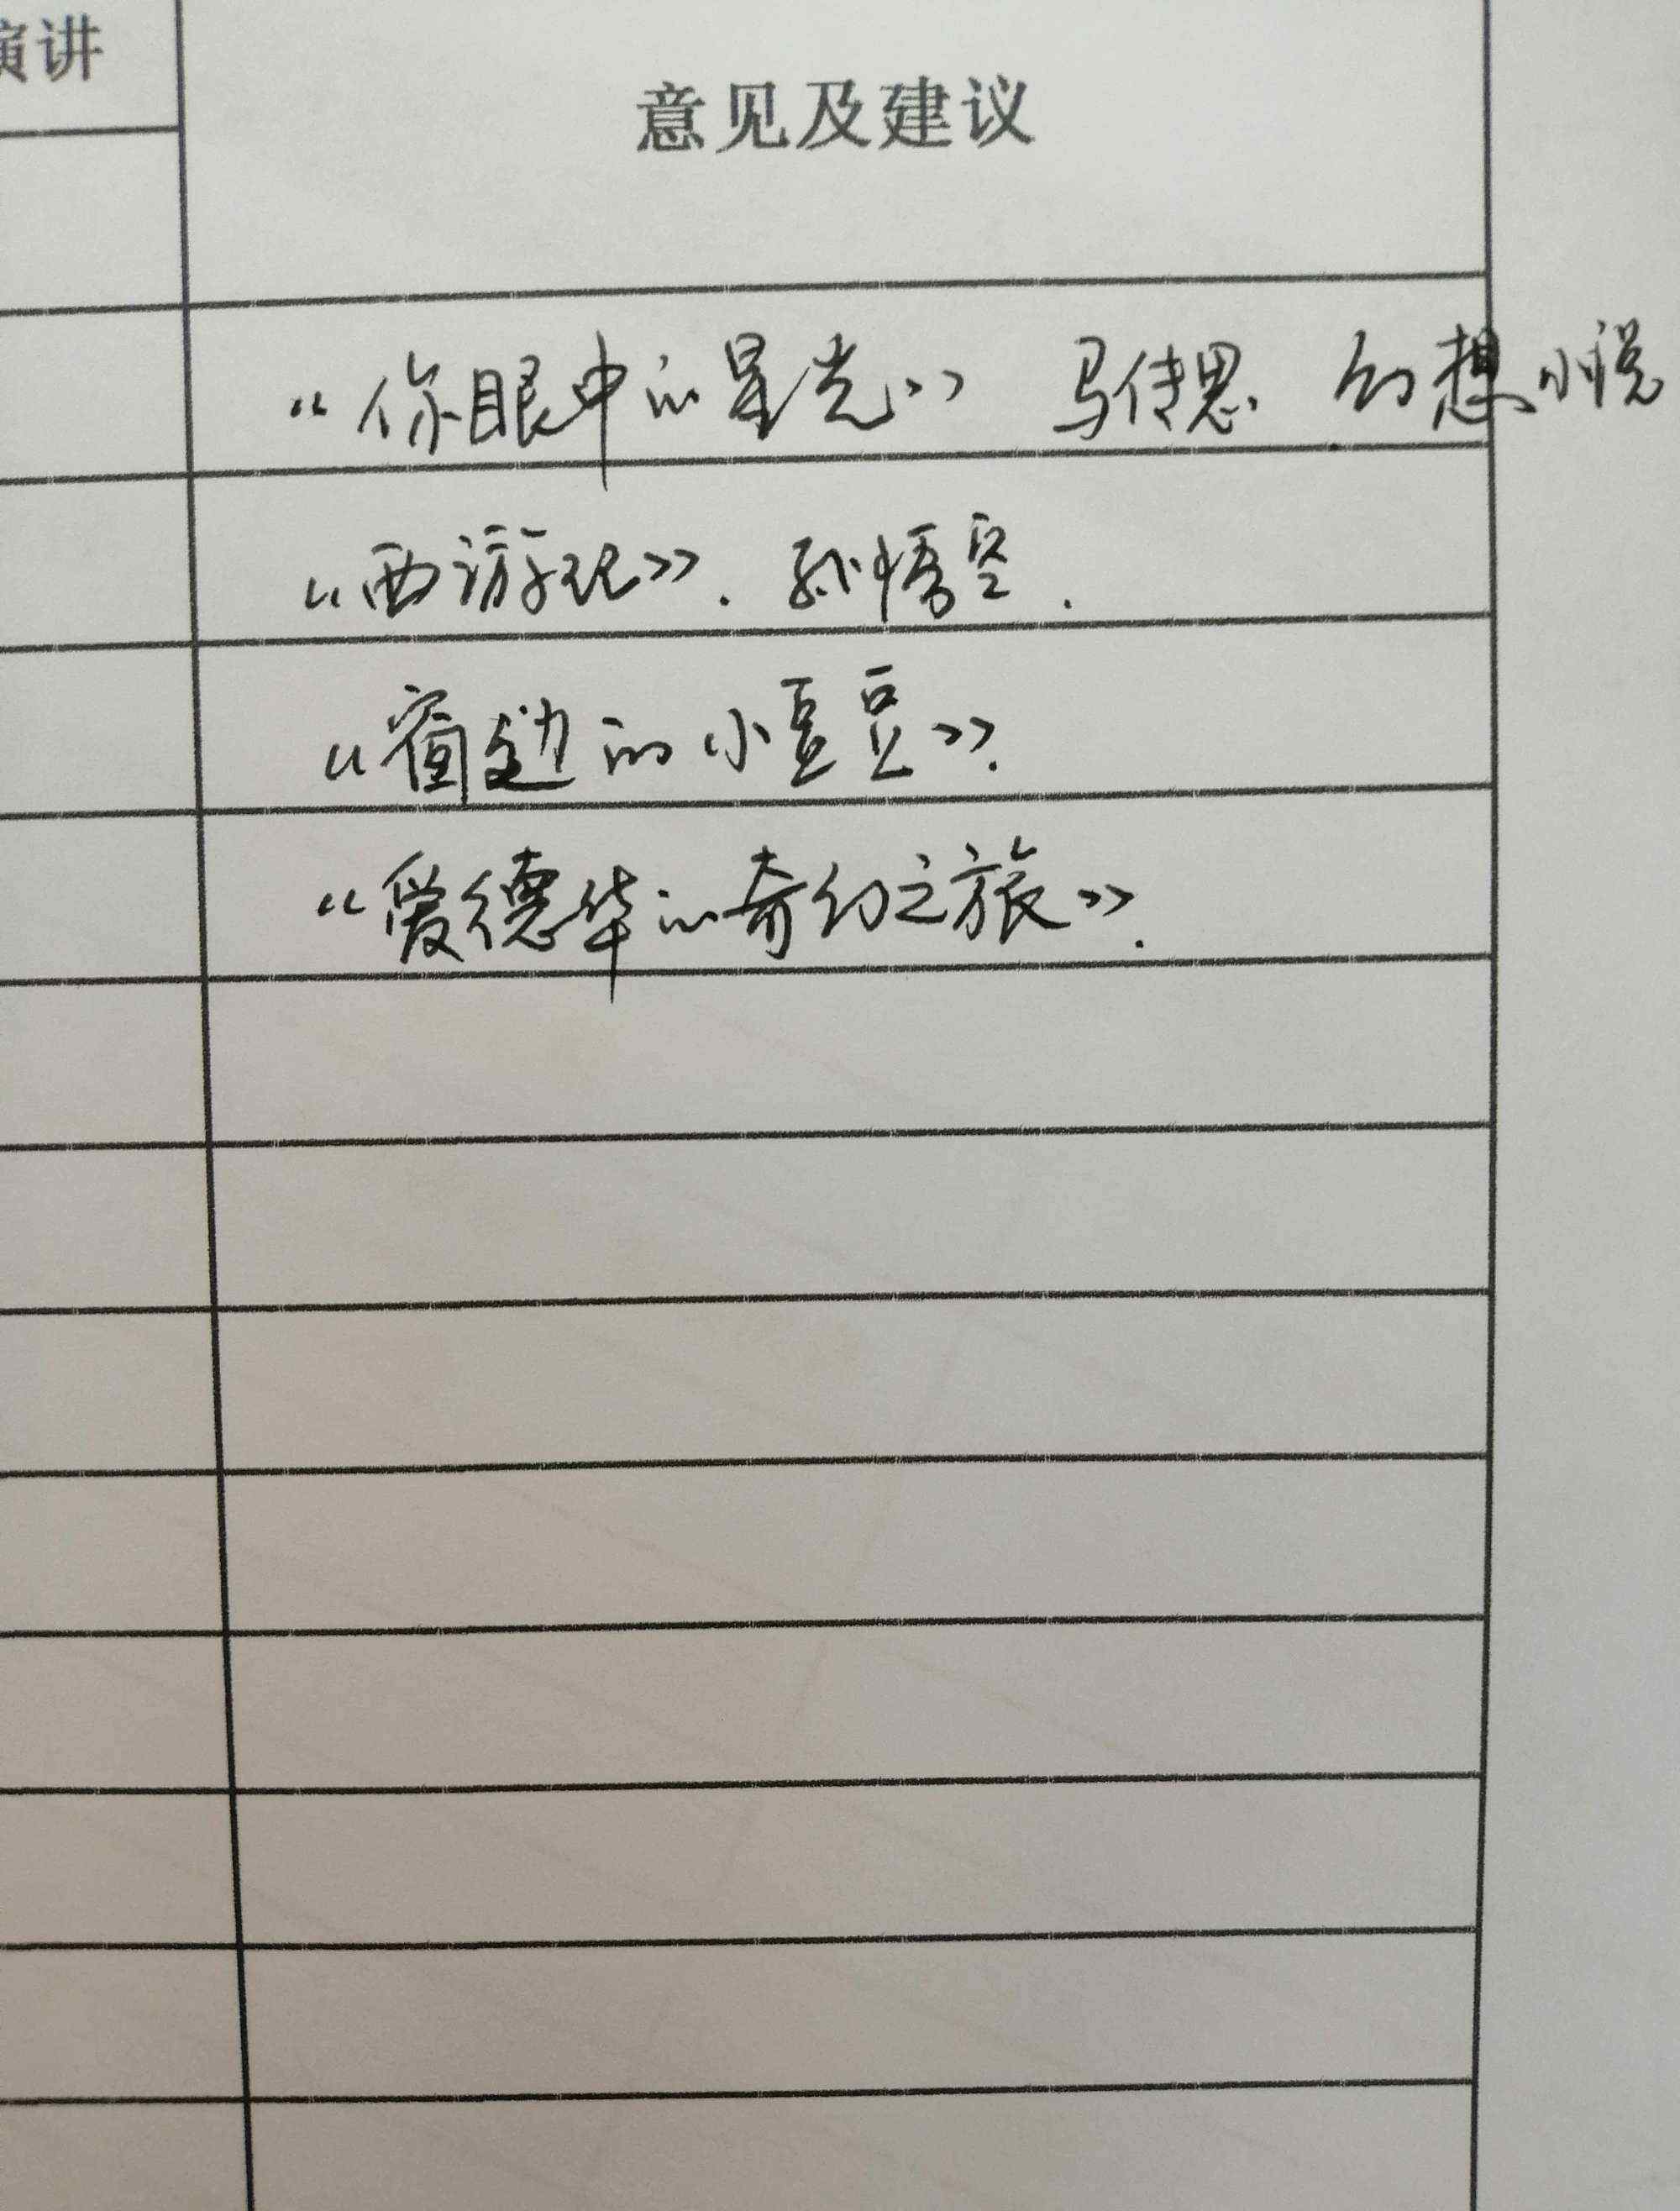 演讲
意见及建议
《你眼中的星光》 马传思 幻想小说
《西游记》. 孙悟空.
《窗边的小豆豆》.
《爱德华的奇幻之旅》.